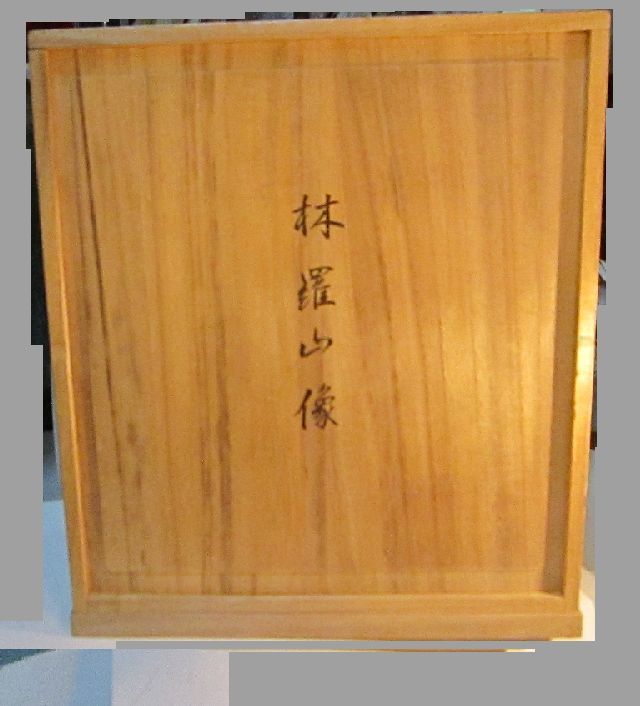 林羅山像